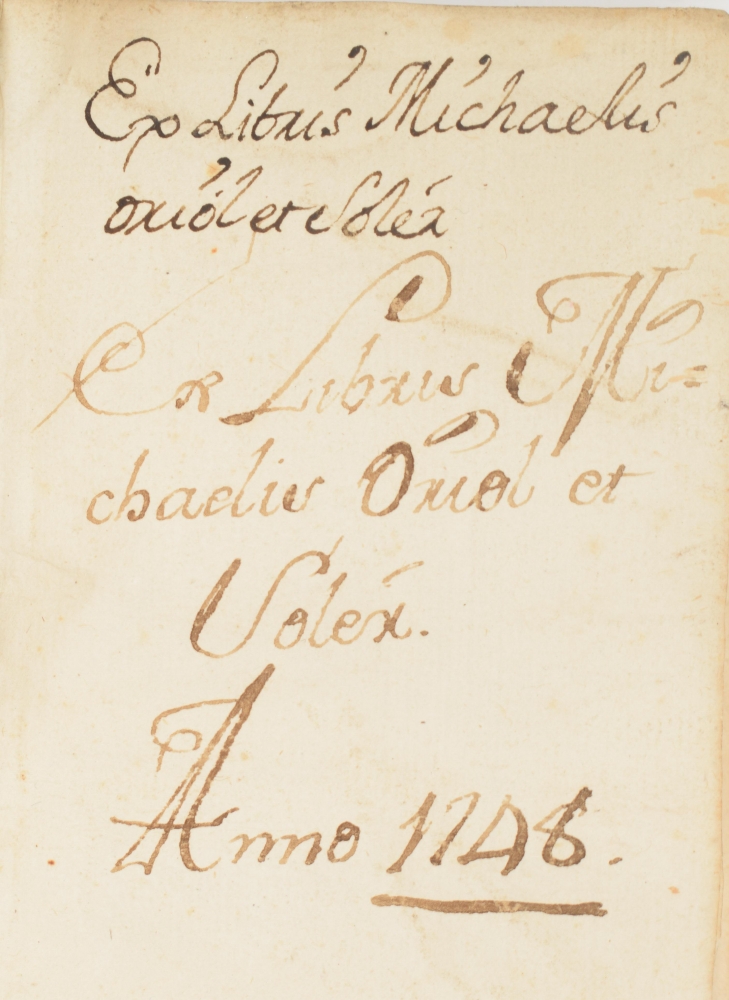 Ex Libris Michaelis
oriól et Solér
Ex Libris Mi=
chaelis Oriol et
Solér.
Anno 1746.